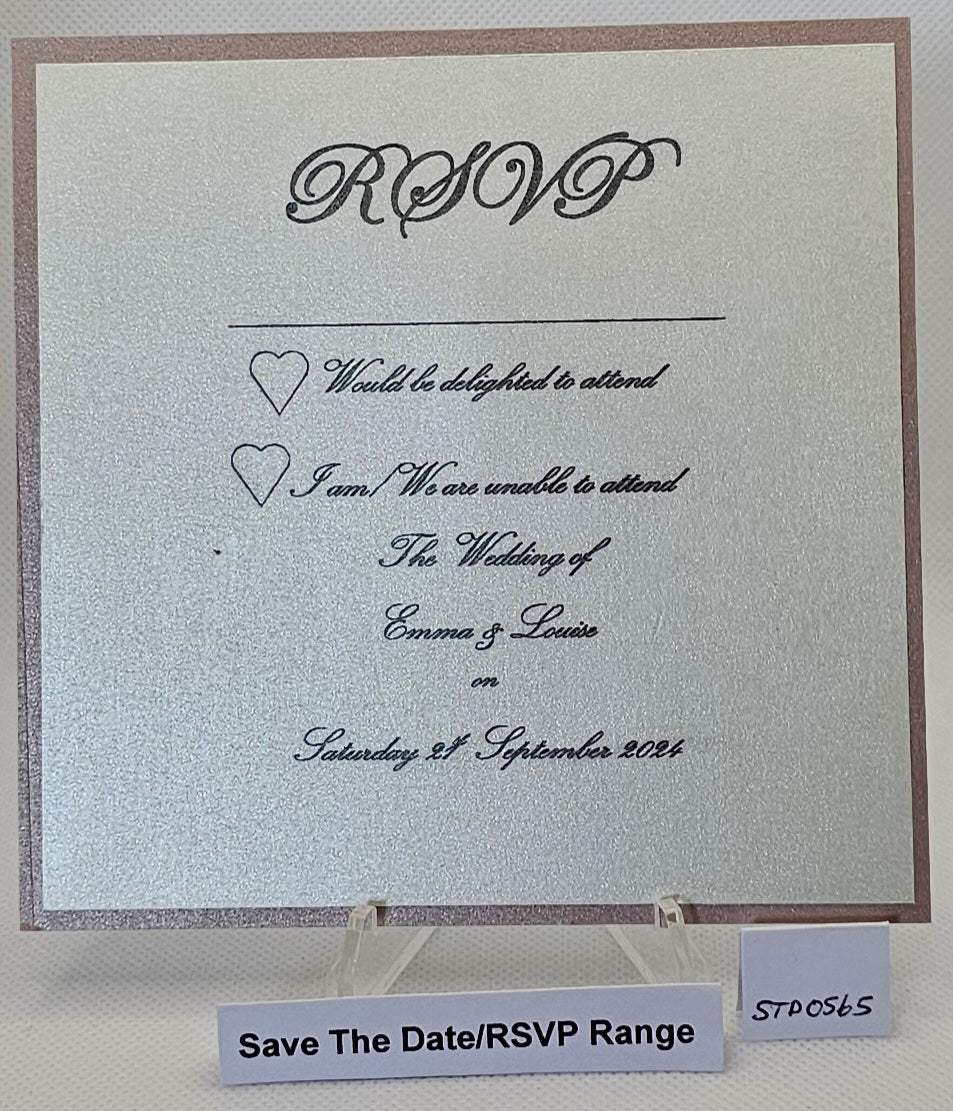 RSVP
Would be delighted to attend
I am/We are unable to attend
The Wedding of
Emma & Louise
on
Saturday 21st September 2024
Save The Date/RSVP Range
STD0565